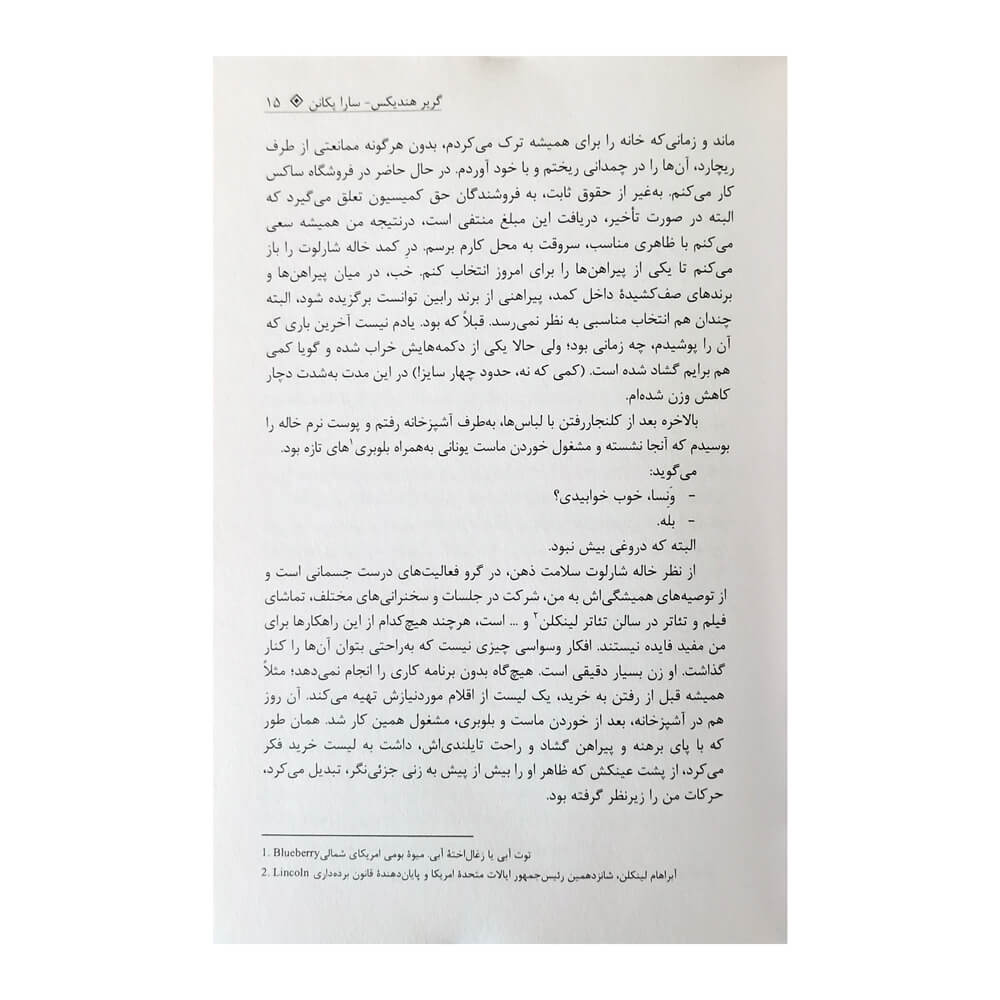 گریر هندیکس- سارا پکانن ۱۵
ماند و زمانی‌که خانه را برای همیشه ترک می‌کردم، بدون هرگونه ممانعتی از طرف
ریچارد، آن‌ها را در چمدانی ریختم و با خود آوردم. در حال حاضر در فروشگاه ساکس
کار می‌کنم. به‌غیر از حقوق ثابت، به فروشندگان حق کمیسیون تعلق می‌گیرد که
البته در صورت تأخیر، دریافت این مبلغ منتفی است، درنتیجه من همیشه سعی
می‌کنم با ظاهری مناسب، سروقت به محل کارم برسم. درِ کمد خاله شارلوت را باز
می‌کنم تا یکی از پیراهن‌ها را برای امروز انتخاب کنم. خب، در میان پیراهن‌ها و
برندهای صف‌کشیدهٔ داخل کمد، پیراهنی از برند رابین توانست برگزیده شود، البته
چندان هم انتخاب مناسبی به نظر نمی‌رسد. قبلاً که بود. یادم نیست آخرین باری که
آن را پوشیدم، چه زمانی بود؛ ولی حالا یکی از دکمه‌هایش خراب شده و گویا کمی
هم برایم گشاد شده است. (کمی که نه، حدود چهار سایز!) در این مدت به‌شدت دچار
کاهش وزن شده‌ام.
بالاخره بعد از کلنجاررفتن با لباس‌ها، به‌طرف آشپزخانه رفتم و پوست نرم خاله را
بوسیدم که آنجا نشسته و مشغول خوردن ماست یونانی به‌همراه بلوبری۱های تازه بود.
می‌گوید:
- وَنِسا، خوب خوابیدی؟
- بله.
البته که دروغی بیش نبود.
از نظر خاله شارلوت سلامت ذهن، در گرو فعالیت‌های درست جسمانی است و
از توصیه‌های همیشگی‌اش به من، شرکت در جلسات و سخنرانی‌های مختلف، تماشای
فیلم و تئاتر در سالن تئاتر لینکلن۲ و ... است، هرچند هیچ‌کدام از این راهکارها برای
من مفید فایده نیستند. افکار وسواسی چیزی نیست که به‌راحتی بتوان آن‌ها را کنار
گذاشت. او زن بسیار دقیقی است. هیچ‌گاه بدون برنامه کاری را انجام نمی‌دهد؛ مثلاً
همیشه قبل از رفتن به خرید، یک لیست از اقلام موردنیازش تهیه می‌کند. آن روز
هم در آشپزخانه، بعد از خوردن ماست و بلوبری، مشغول همین کار شد. همان طور
که با پای برهنه و پیراهن گشاد و راحت تایلندی‌اش، داشت به لیست خرید فکر
می‌کرد، از پشت عینکش که ظاهر او را بیش از پیش به زنی جزئی‌نگر، تبدیل می‌کرد،
حرکات من را زیرنظر گرفته بود.
1. Blueberry توت آبی یا زغال‌اختهٔ آبی. میوهٔ بومی امریکای شمالی
2. Lincoln آبراهام لینکلن، شانزدهمین رئیس‌جمهور ایالات متحدهٔ امریکا و پایان‌دهندهٔ قانون برده‌داری